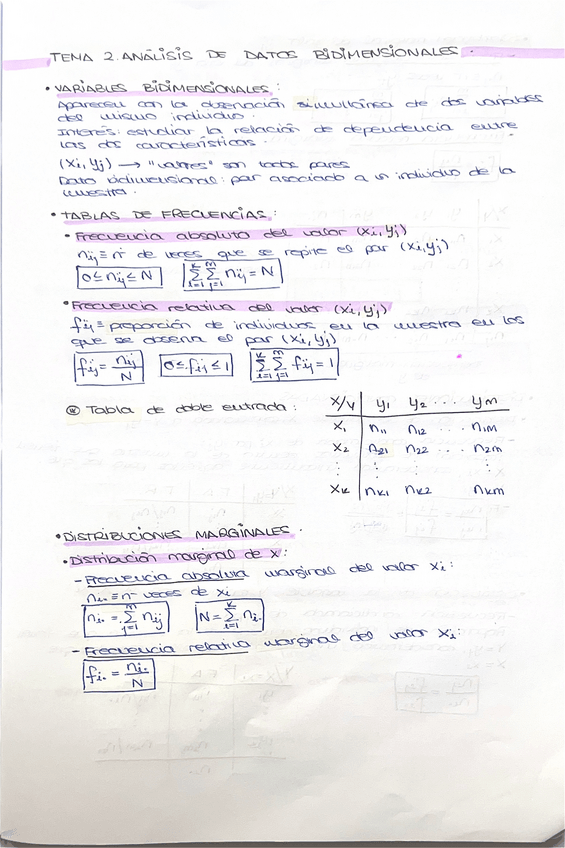 TEMA 2. ANÁLISIS DE DATOS BIDIMENSIONALES.
• VARIABLES BIDIMENSIONALES:
Aparecen con la observación simultánea de dos variables
del mismo individuo.
Interés: estudiar la relación de dependencia entre
las dos características.
(xi, yj) → "valores" son todos pares
Dato bidimensional: par asociado a un individuo de la
muestra.
• TABLAS DE FRECUENCIAS:
• Frecuencia absoluta del valor (xi, yj)
nij ≡ nº de veces que se repite el par (xi, yj)
0 ≤ nij ≤ N   Σ_{i=1}^{k} Σ_{j=1}^{m} nij = N
• Frecuencia relativa del valor (xi, yj)
fij ≡ proporción de individuos en la muestra en los
que se observa el par (xi, yj)
fij = nij/N   0 ≤ fij ≤ 1   Σ_{i=1}^{k} Σ_{j=1}^{m} fij = 1
Tabla de doble entrada:
X/Y y1 y2 ... ym
x1 n11 n12 ... n1m
x2 n21 n22 ... n2m
⋮ ⋮ ⋮ ⋮
xk nk1 nk2 nkm
• DISTRIBUCIONES MARGINALES.
• Distribución marginal de x:
- Frecuencia absoluta marginal del valor xi:
ni• ≡ nº veces de xi
ni• = Σ_{j=1}^{m} nij   N = Σ_{i=1}^{k} ni•
- Frecuencia relativa marginal del valor xi:
fi• = ni•/N